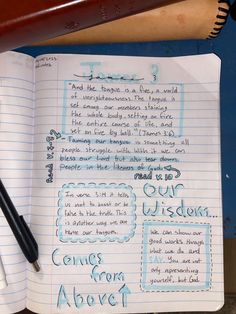 James 3
"And the tongue is a fire, a world
of unrighteousness. The tongue is
set among our members staining
the whole body, setting on fire
the entire course of life, and
set on fire by hell." (James 3:6)
Read v. 7-8
Taming our tongue is something all
people struggle with. With it we can
bless our Lord but also tear down
people in the likeness of God.
read v. 10
In verse 3:14 it tells
us not to boast or be
false to the truth. This
is another way we use
our tongues.
Our
Wisdom...
Comes
from
Above!
We can show our
good works through
what we do and
SAY. You are not
only representing
yourself, but God.